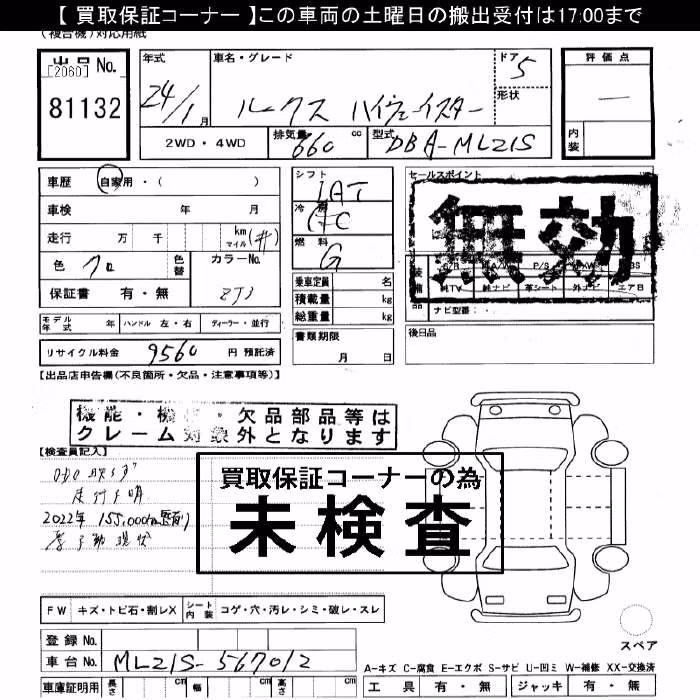 【 買取保証コーナー 】この車両の土曜日の搬出受付は17:00まで
(複合機)対応用紙
出品 No.
[2060]
81132
年式
24/1月
車名・グレード
ルークス ハイウェイスター
ドア 5
形状
評価点
―
内装
2WD・4WD
排気量 660 cc
型式 DBA-ML21S
車歴 自家用・( )
車検 年 月
走行 万 千 km マイル (#)
色 クロ 色替
カラーNo. ZJ3
保証書 有・無
シフト IAT
冷房
燃料 G
乗車定員 名
積載量 kg
総重量 kg
書類期限
月 日
セールスポイント
無効
装備品
純TV 純ナビ 革シート 外ナビ エアB
ナビ型番:
後日品
モデル年式 年 ハンドル 左・右 ディーラー・並行
リサイクル料金 9560 円 預託済
【出品店申告欄(不良箇所・欠品・注意事項等)】
機能・機 ・欠品部品等は
クレーム対象外となります
【検査員記入】
走行不明
2022年 155,000km
現状
買取保証コーナーの為
未検査
FW キズ・トビ石・割レX シート内装 コゲ・穴・汚レ・シミ・破レ・スレ
スペア
登録 No.
車台 No. ML21S-567012
車庫証明用 長さ cm 幅 cm 高さ cm
A-キズ C-腐食 E-エクボ S-サビ U-凹ミ W-補修 XX-交換済
工具 有・無 ジャッキ 有・無